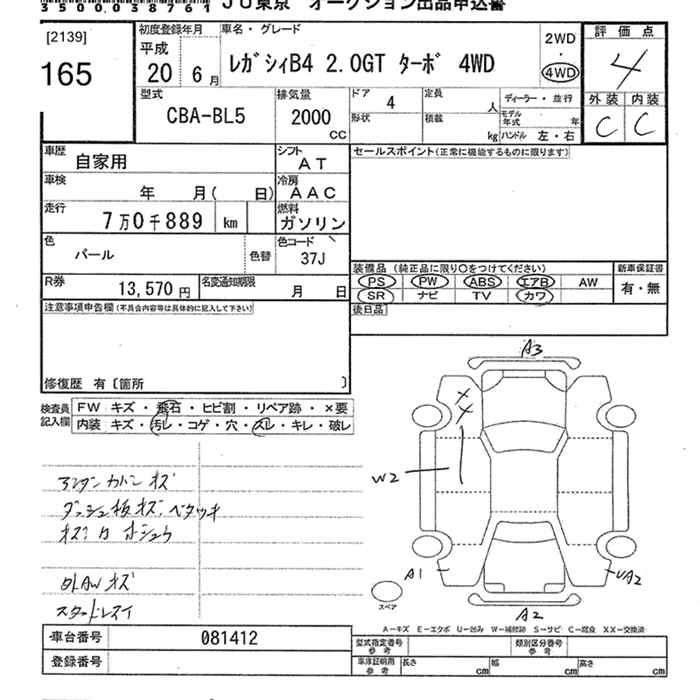 350003876１ JU東京 オークション出品申込書
[2139]
165
初度登録年月
平成
20 6月
車名・グレード
レガシィB4 2.0GT ターボ 4WD
2WD
・
4WD
評価点
4
外装 内装
C C
型式
CBA-BL5
排気量
2000
CC
ドア
4
定員
人
形状
積載
kg
ディーラー・並行
モデル年式 年
ハンドル 左・右
車歴
自家用
シフト
AT
セールスポイント(正常に機能するものに限ります)
車検
年 月( 日)
冷房
AAC
走行
7万0千889 km
燃料
ガソリン
色
パール
色替
色コード
37J
R券
13,570円
名変通知期限
月 日
装備品(純正品に限り○をつけてください)
新車保証書
PS PW ABS エアB AW
有・無
SR ナビ TV カワ
後日品
注意事項申告欄(不具合内容等は具体的に記入して下さい)
修復歴 有〔箇所 〕
検査員記入欄
FW キズ・飛石・ヒビ割・リペア跡・×要
内装 キズ・汚レ・コゲ・穴・スレ・キレ・破レ
A3
X
X
W2
A1
UA2
A2
スペア
アンダーカバーキズ
ダッシュ板キズ、ベタツキ
外AWキズ
A−キズ E−エクボ U−凹み W−補修跡 S−サビ C−腐食 XX−交換済
車台番号 081412
登録番号
型式指定番号 参考
類別区分番号 参考
車庫証明用 参考
長さ cm
幅 cm
高さ cm